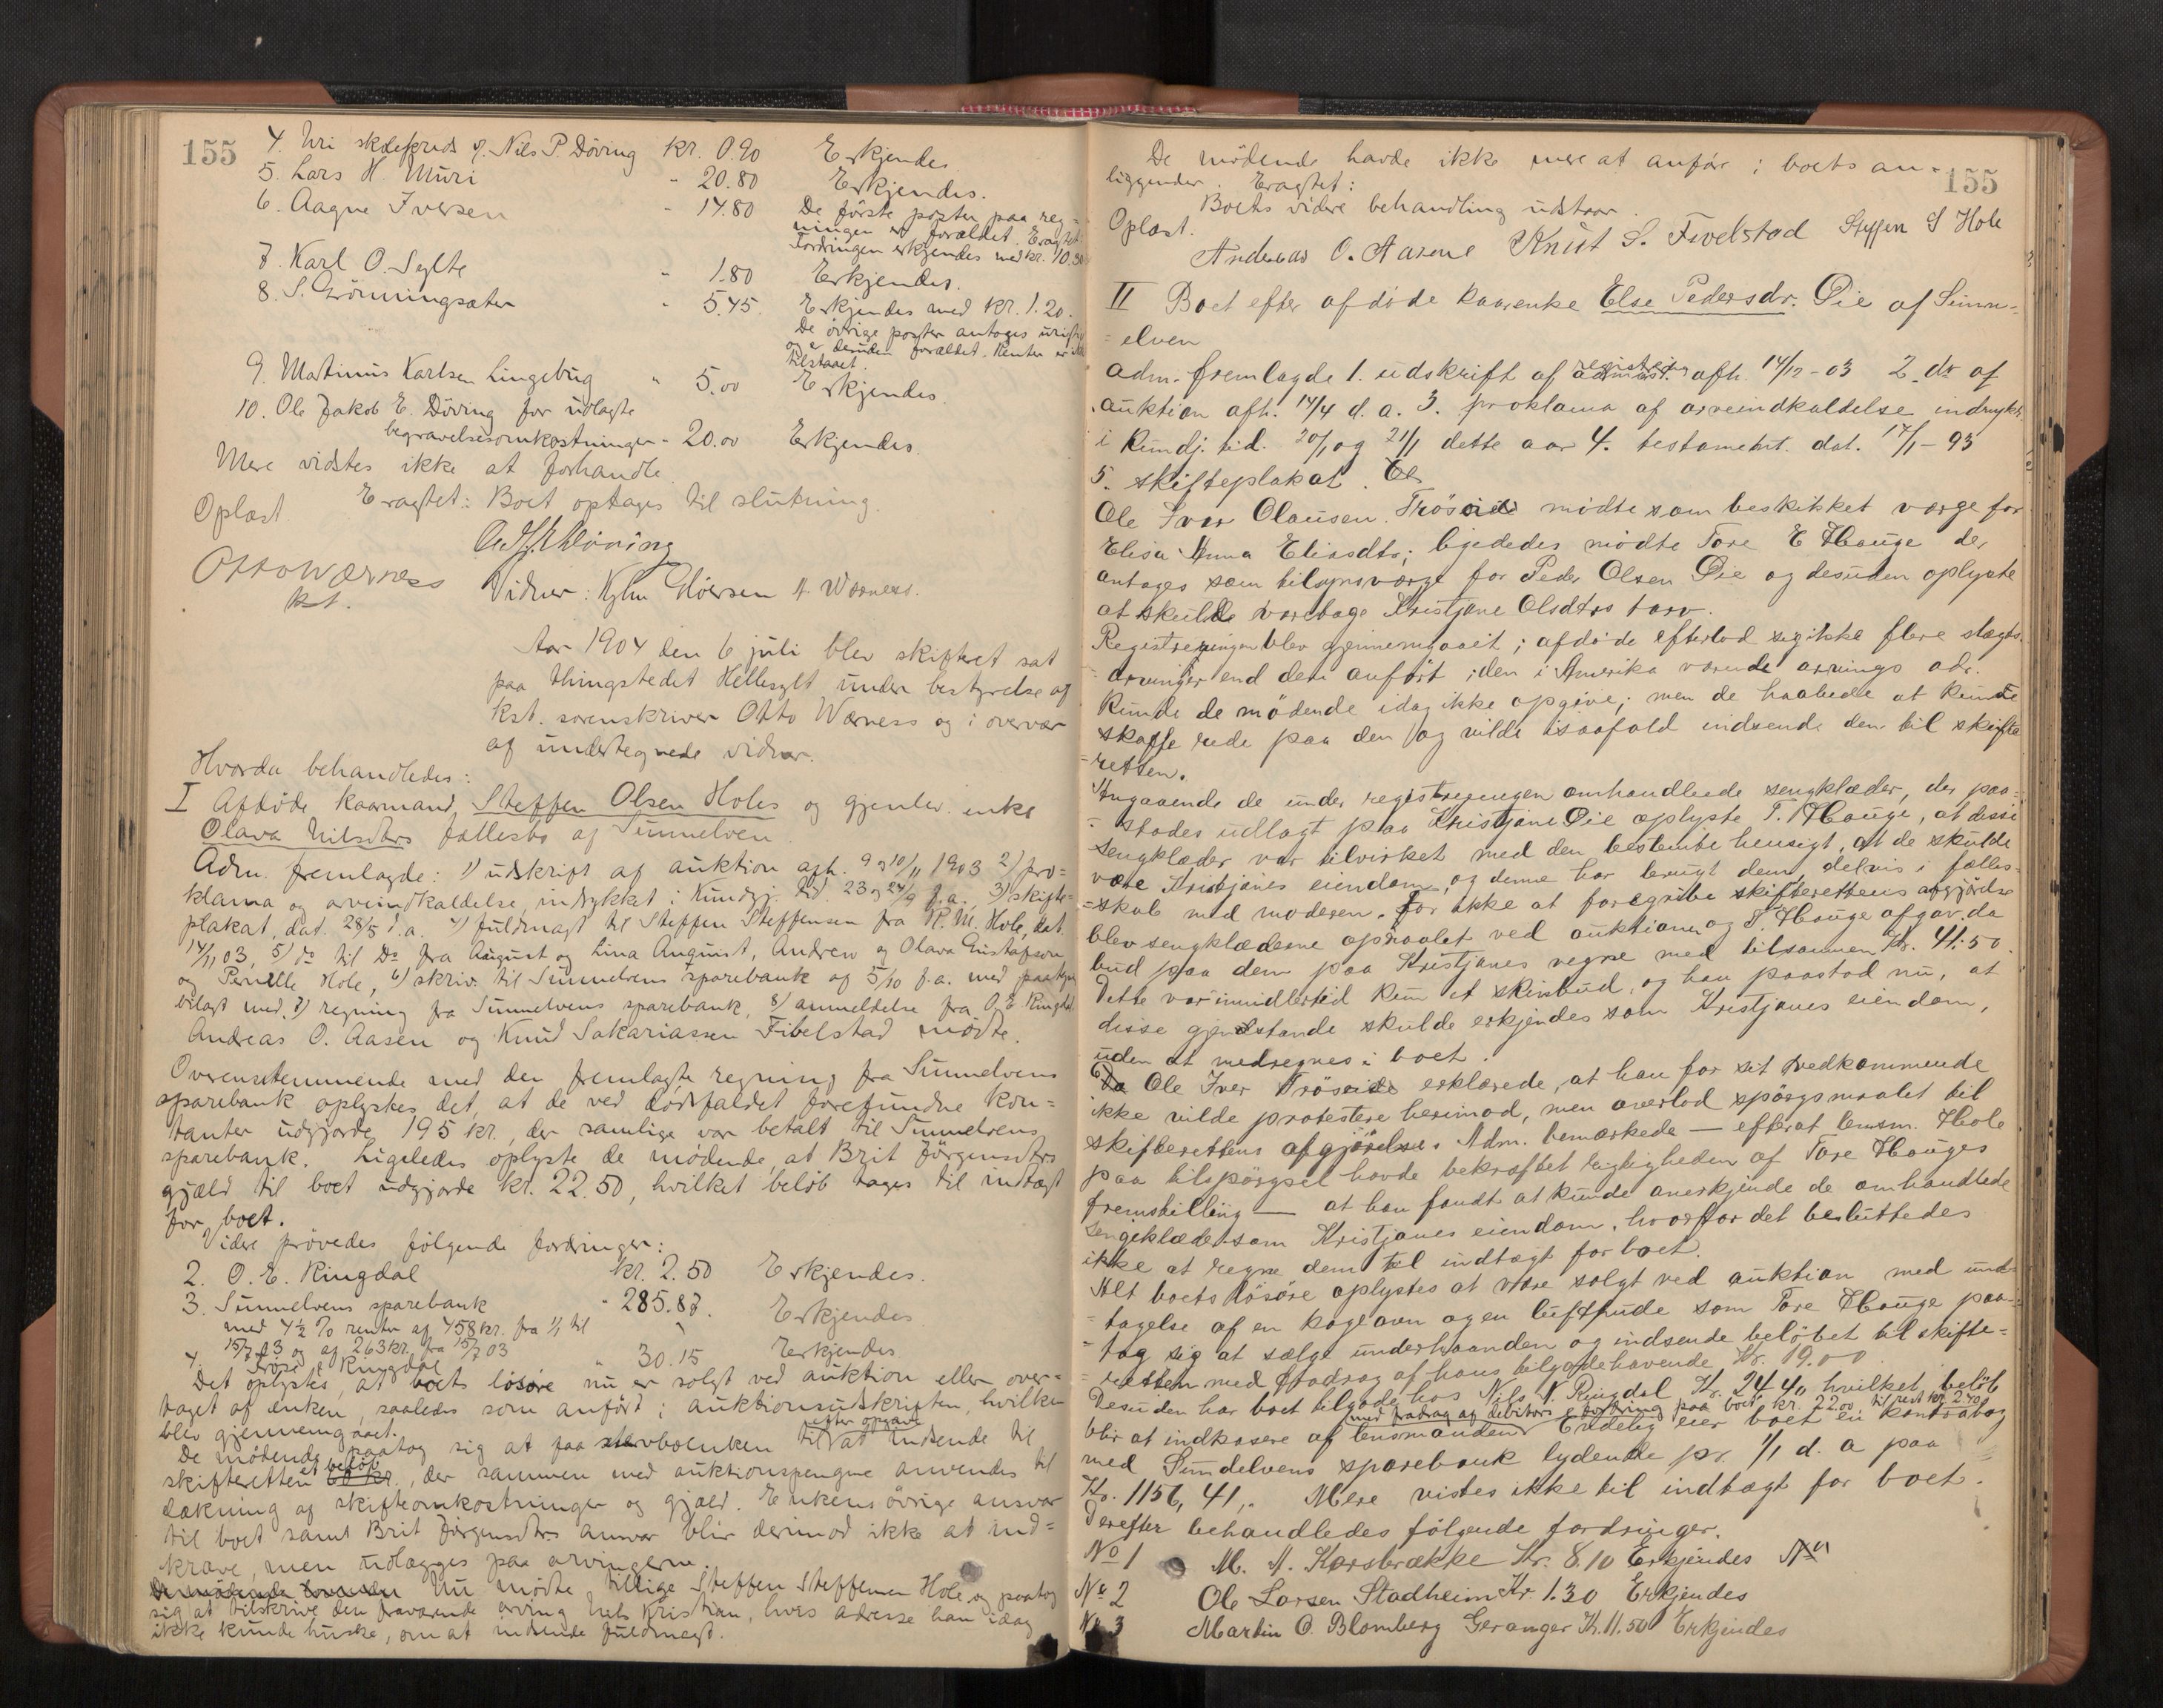 155
4. Uri skolekreds v. Nils P. Döving kr. 0.90 Erkjendes
5. Lars H. Muri - 20.80 Erkjendes.
6. Aagne Iversen - 14.80 De første poster paa reg=
ningen er forældet. Eragtet:
Fordringen erkjendes med kr. 10.30
7. Karl O. Sylte - 1.80 Erkjendes.
8. S. Grönningsæter - 5.45. Erkjendes med kr. 1.20.
De övrige poster antages urigtig
og er desuden forældet. Renter er ikke
tilstaaet.
9. Martinus Karlsen Lingebug " 5.00 Erkjendes.
10. Ole Jakob E. Döving for udlagte
begravelsesomkostninger - 20.00 Erkjendes.
Mere vidstes ikke at forhandle.
Eragtet: Boet optages til slutning.
Oplæst.
Otto Wærness
kst.
Vidner: Glöersen A. Wærness.
Aar 1904 den 6 juli blev skifteret sat
paa thingstedet Hellesylt under bestyrelse af
kst. sorenskriver Otto Wærness og i overvær
af undertegnede vidner.
Hvorda behandledes:
I Afdöde kaarmand Steffen Olsen Holes og gjenlev. enke
Olava Nilsdtrs fællesbo af Sunnelven.
Adm. fremlagde: 1) udskrift af auktion afh. 9 og 10/11 1903 2) pro=
klama og arveindkaldelse indrykket i Kundgj. tid. 23 og 24/9 f.a., 3) skifte=
plakat, dat. 28/5 d.a. 4) fuldmagt til Steffen Steffensen fra P. M. Hole, dat.
14/11 03, 5) do til Do fra August og Lina Angvist, Andrew og Olava Gustafson
og Pernelle Hole, 6) skriv. til Sunnelvens sparebank af 5/10 f.a. med paategn.
bilagt med 7) regning fra Sunnelvens sparebank, 8) anmeldelse fra O. E. Ringdal
Andreas O. Aasen og Knud Sakariassen Fibelstad mødte.
Overensstemmende med den fremlagte regning fra Sunnelvens
sparebank oplystes det, at de ved dødsfaldet forefundne kon=
tanter udgjorde 195 kr., der samtlige var betalt til Sunnelvens
sparebank. Ligeledes oplyste de mødende, at Brit Jörgensdtrs
gjæld til boet udgjorde kr. 22.50, hvilket beløb tages til indtægt
for boet.
Videre prövedes fölgende fordringer:
2. O. E. Ringdal kr. 2.50 Erkjendes.
3. Sunnelvens sparebank - 285.87. Erkjendes
med 4½ % renter af 458 kr. fra 1/1 til
15/7 03 og af 263 kr. fra 15/7 03
4. Ringdal " 30.15 Erkjendes
Det oplystes, at boets lösöre nu er solgt ved auktion eller over=
taget af enken, saaledes som anført i auktionsudskriften, hvilken
blev gjennemgaaet.
De mødende paatog sig at faa stervboenken til efter opgave at indsende til
skifteretten 60 kr. et beløb, der sammen med auktionspengene anvendes til
dækning af skifteomkostninger og gjæld. Enkens övrige ansvar
til boet samt Brit Jörgensdtrs ansvar blir derimod ikke at ind=
kræve, men udlægges paa arvingerne.
De mødende Nu mødte tillige Steffen Steffensen Hole og paatog
sig at tilskrive den fraværende arving Nils Kristian, hvis adresse han idag
ikke kunde huske, om at indsende fuldmagt.
155
De mödende havde ikke mere at anføre i boets an=
liggender. Eragtet:
Boets videre behandling udstaar.
Oplæst.
Andreas O. Aasene Knut S. Fivelstad Steffen S Hole
II Boet efter afdöde kaarenke Else Pedersdr. Öie af Sunn=
=elven
Adm. fremlagde 1. udskrift af registrering afh. 14/12-03 2. do af
auktion afh. 14/4 d. a. 3. proklama af arveindkaldelse indrykt.
i Kundj. tid. 20/1 og 21/1 dette aar 4. testament. dat. 17/1-93
5. skifteplakat.
Ole Iver Olausen Tröseide mödte som beskikket værge for
Elisa Anna Eliasdtr; ligeledes mødte Tore E Hauge der
antages som tilsynsværge for Peder Olsen Öie og desuden oplyste
at skulde varetage Kristjane Olsdtrs tarv.
Registreringen blev gjennemgaaet; afdöde efterlod sig ikke flere slægts=
=arvinger end den anført; den i Amerika værende arvings adr.
kunde de mødende idag ikke opgive; men de haabede at kunde
skaffe rede paa den og vilde isaafald indsende den til skifte
=retten.
Angaaende de under registreringen omhandlede sengklæder, der paa=
=stodes udlagt paa Kristjane Öie oplyste T. Hauge, at disse
sengklæder var tilvirket med den bestemte hensigt, at de skulde
være Kristjanes eiendom, og denne har brugt dem, delvis i fælles=
=skab med moderen. For ikke at foregribe skifterettens afgjördse
blev sengklæderne opraabt ved auktionen og T. Hauge afgav da
bud paa dem paa Kristjanes vegne med tilsammen Kr. 41.50.
Dette var imidlertid kun et skinbud, og han paastod nu, at
disse gjendstande skulde erkjendes som Kristjanes eiendom,
uden at medregnes i boet.
Da Ole Iver Tröseide erklærede, at han for sit vedkommende
ikke vilde protestere herimod, men overlod spörgsmaalet til
skifterettens afgjörelse. Adm. bemærkede — efterat lensm. Hole
paa tilspörgsel havde bekræftet rigtigheden af Tore Hauges
fremstilling — at han fandt at kunde anerkjende de omhandlede
sengeklæder som Kristjanes eiendom, hvorfor det besluttedes
ikke at regne dem til indtægt for boet.
Alt boets lösöre oplystes at være solgt ved auktion med und=
=tagelse af en kogeovn og en luftpude som Tore Hauge paa=
=tog sig at sælge underhaanden og indsende beløbet til skifte=
=retten med fradrag af hans tilgodehavende Kr. 19.00
Desuden har boet tilgode hos Nils N. Ringdal Kr. 24.40 hvilket beløb
med fradrag af debitors fordring paa boet kr. 22.00, til rest kr. 2.40,
blir at indkasere af lensmanden. Endelig eier boet en kontrabog
med Sundelvens sparebank lydende pr. 1/1 d. a paa
Kr. 1156,41,. Mere vistes ikke til indtægt for boet.
Derefter behandledes følgende fordringer.
No 1 M. A. Korsbrække Kr. 8.10 Erkjendes
No 2 Ole Larsen Stadheim Kr. 1.30 Erkjendes
No 3 Martin O. Blomberg Geranger Kr. 11.50 Erkjendes